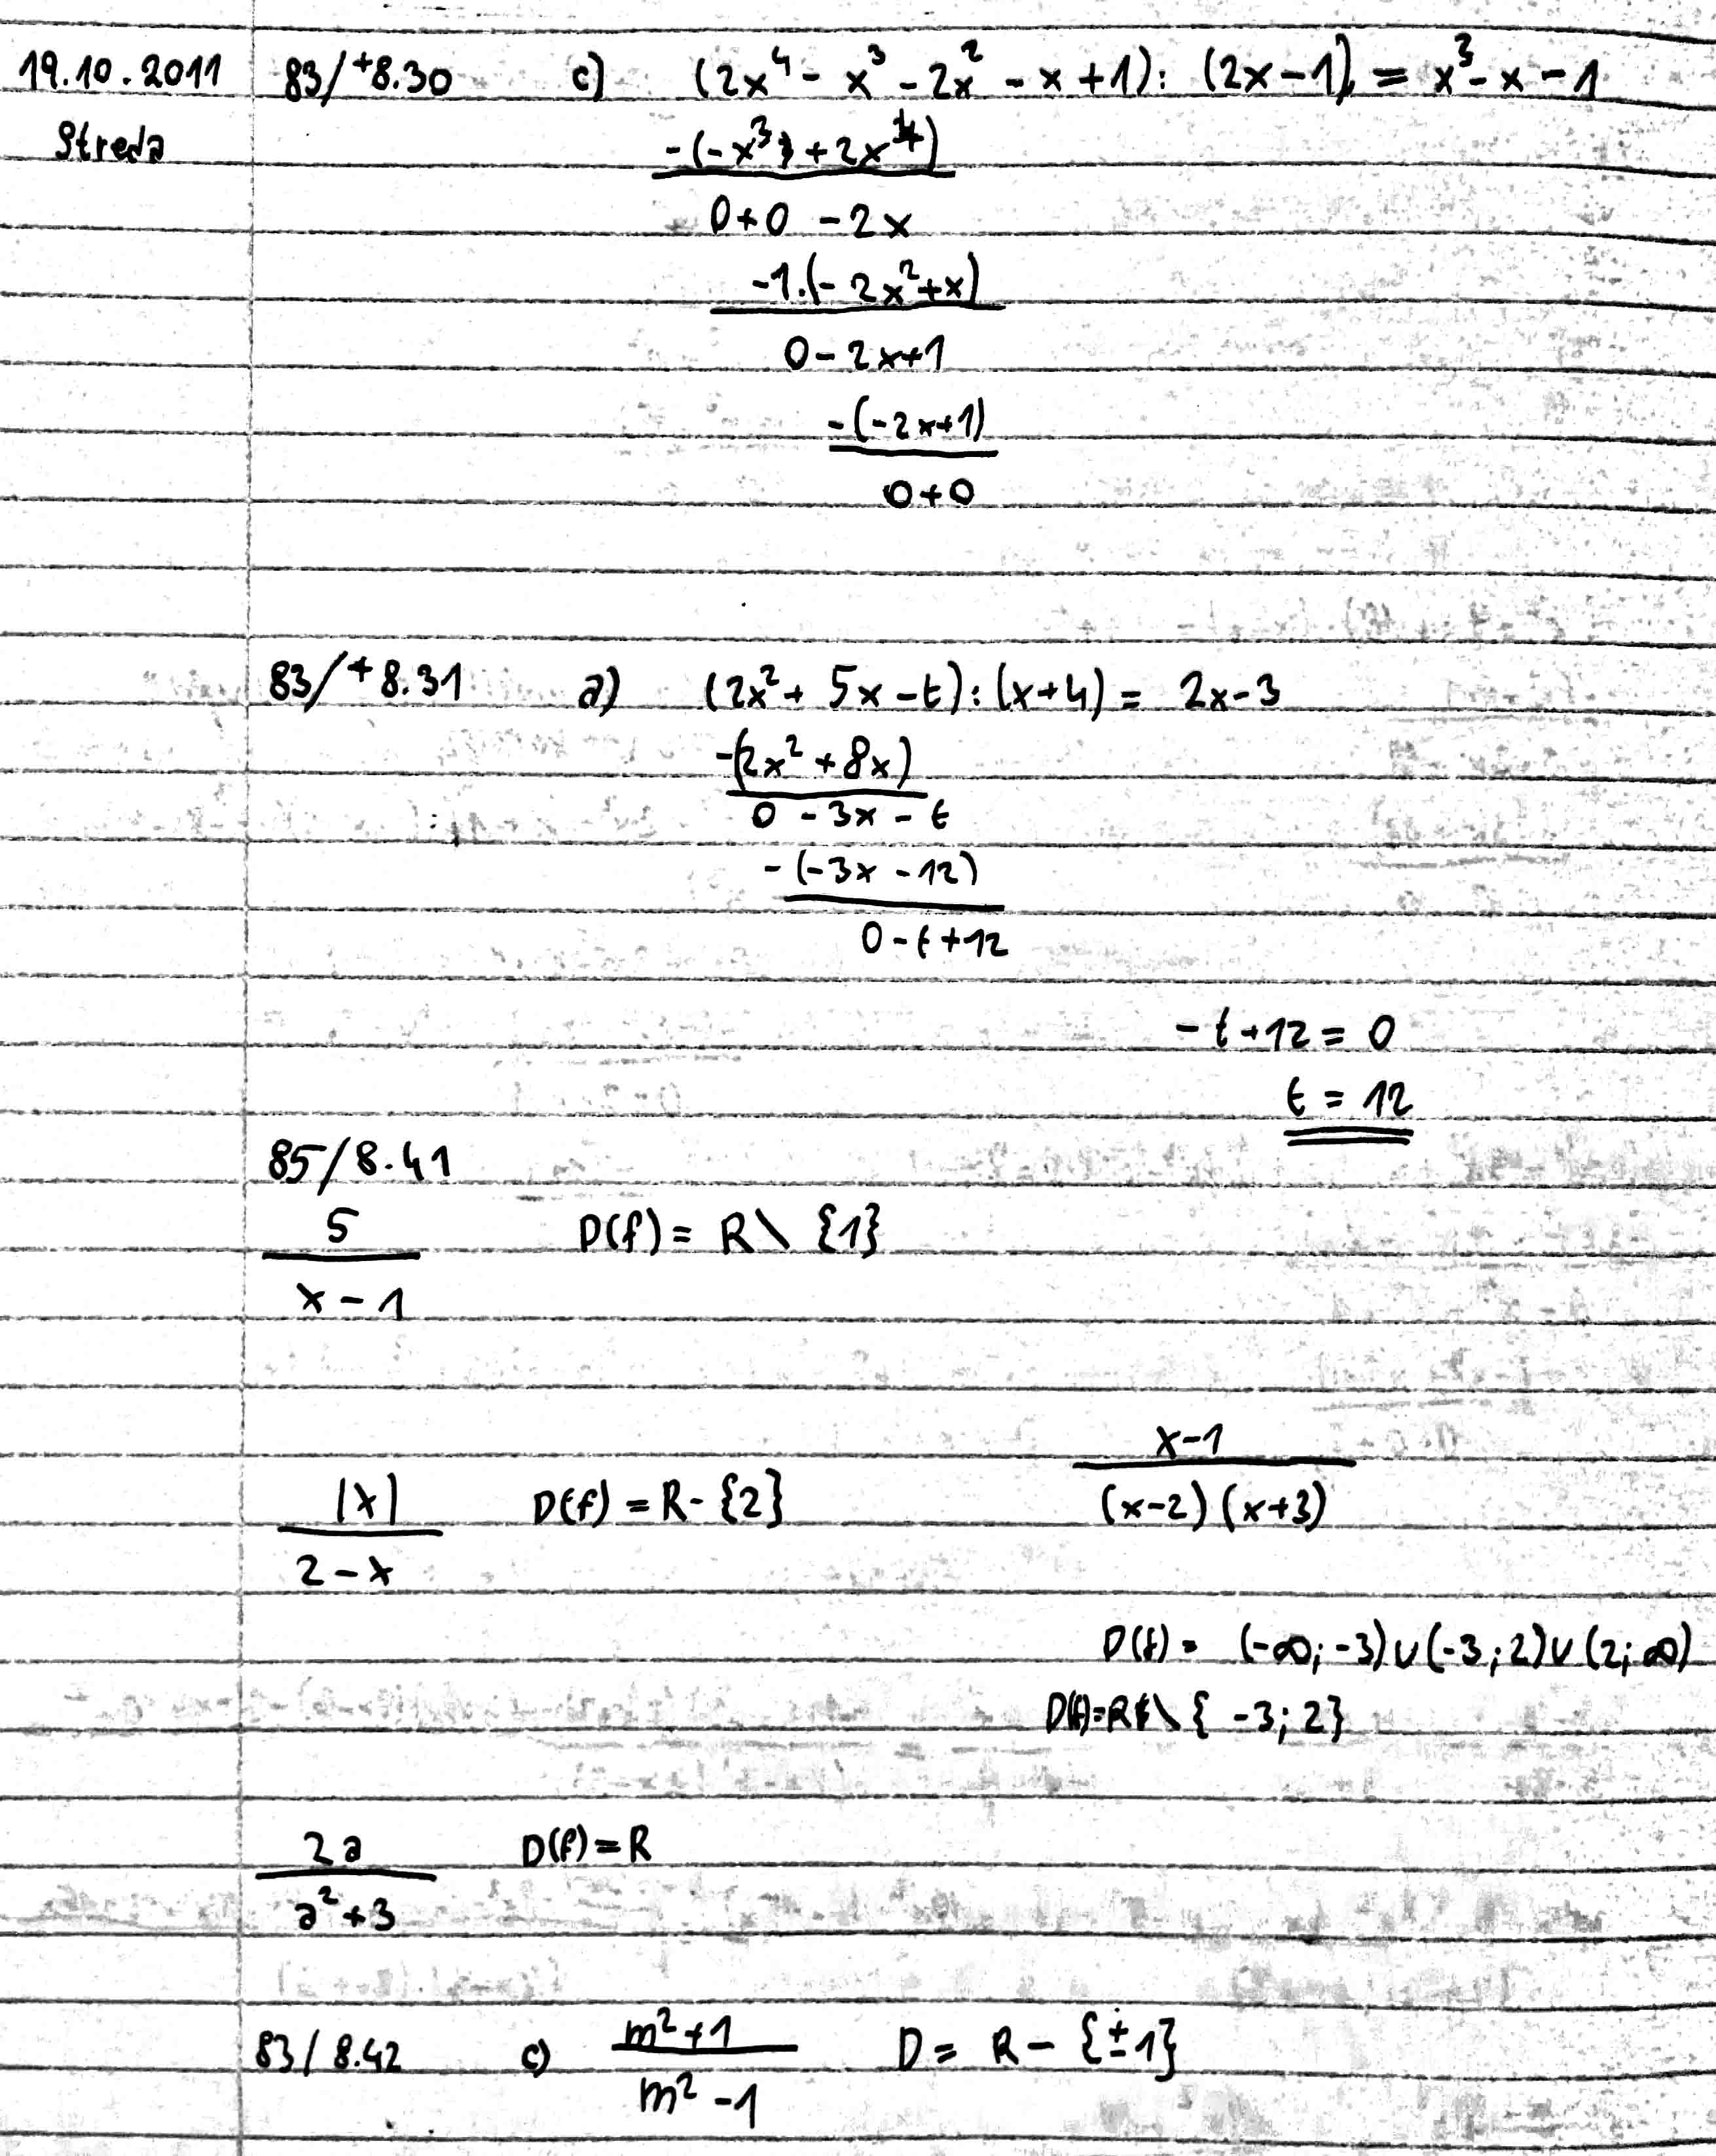 19.10.2011 83/+8.30 c) (2x⁴ - x³ - 2x² - x + 1) : (2x - 1) = x³ - x - 1
Streda
-(-x³ + 2x⁴)
0 + 0 - 2x
-1.(-2x² + x)
0 - 2x + 1
-(-2x + 1)
0 + 0
83/+8.31 a) (2x² + 5x - t) : (x + 4) = 2x - 3
-(2x² + 8x)
0 - 3x - t
-(-3x - 12)
0 - t + 12
-t + 12 = 0
t = 12
85/8.41
5
D(f) = R \ {1}
x - 1
x - 1
|x| D(f) = R - {2} (x-2)(x+3)
2 - x
D(f) = (-∞; -3) ∪ (-3; 2) ∪ (2; ∞)
D(f) = R \ { -3; 2}
2a D(f) = R
a² + 3
83/8.42 c) m² + 1 D = R - {±1}
m² - 1